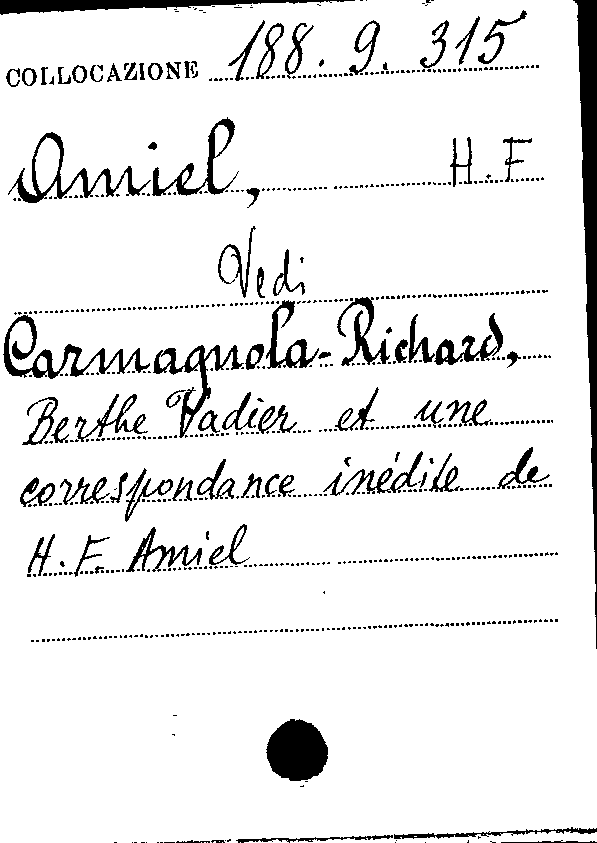 COLLOCAZIONE 188. 9. 315
Amiel, H.F
Vedi
Carmagnola-Richard,
Berthe Vadier et une
correspondance inédite de
H.F. Amiel